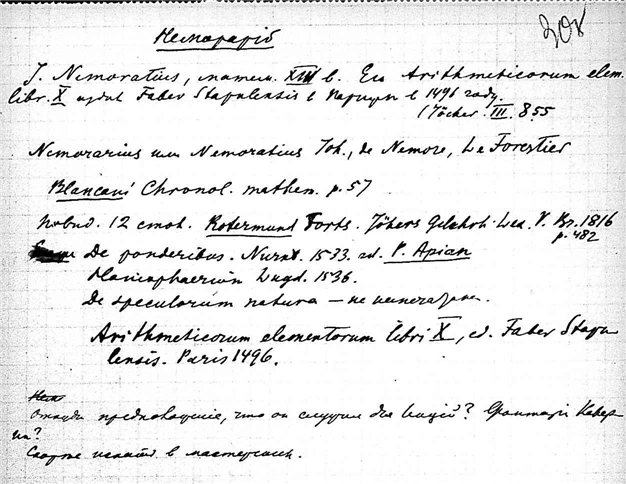 308
Неморарій
J. Nemoratius, матем. XIII в. Его Arithmeticorum elem.
libr. X издал Faber Stapulensis в Париж в 1496 году.
(Jöcher. III. 855
Nemorarius или Nemoratius Joh., de Nemore, Le Forestier
Blancani Chronol. mathem. p. 57
12 стол. Rotermund Forts. Jöchers Gelehrt. Lex. V. Br. 1816
p. 482
De ponderibus. Nurnb. 1533. ed. P. Apian
Planisphaerium Lugd. 1536.
De speculorum natura — не напечатано.
Arithmeticorum elementorum libri X, ed. Faber Stapu
lensis. Paris 1496.
Откуда предположение, что он
?
Скорее в